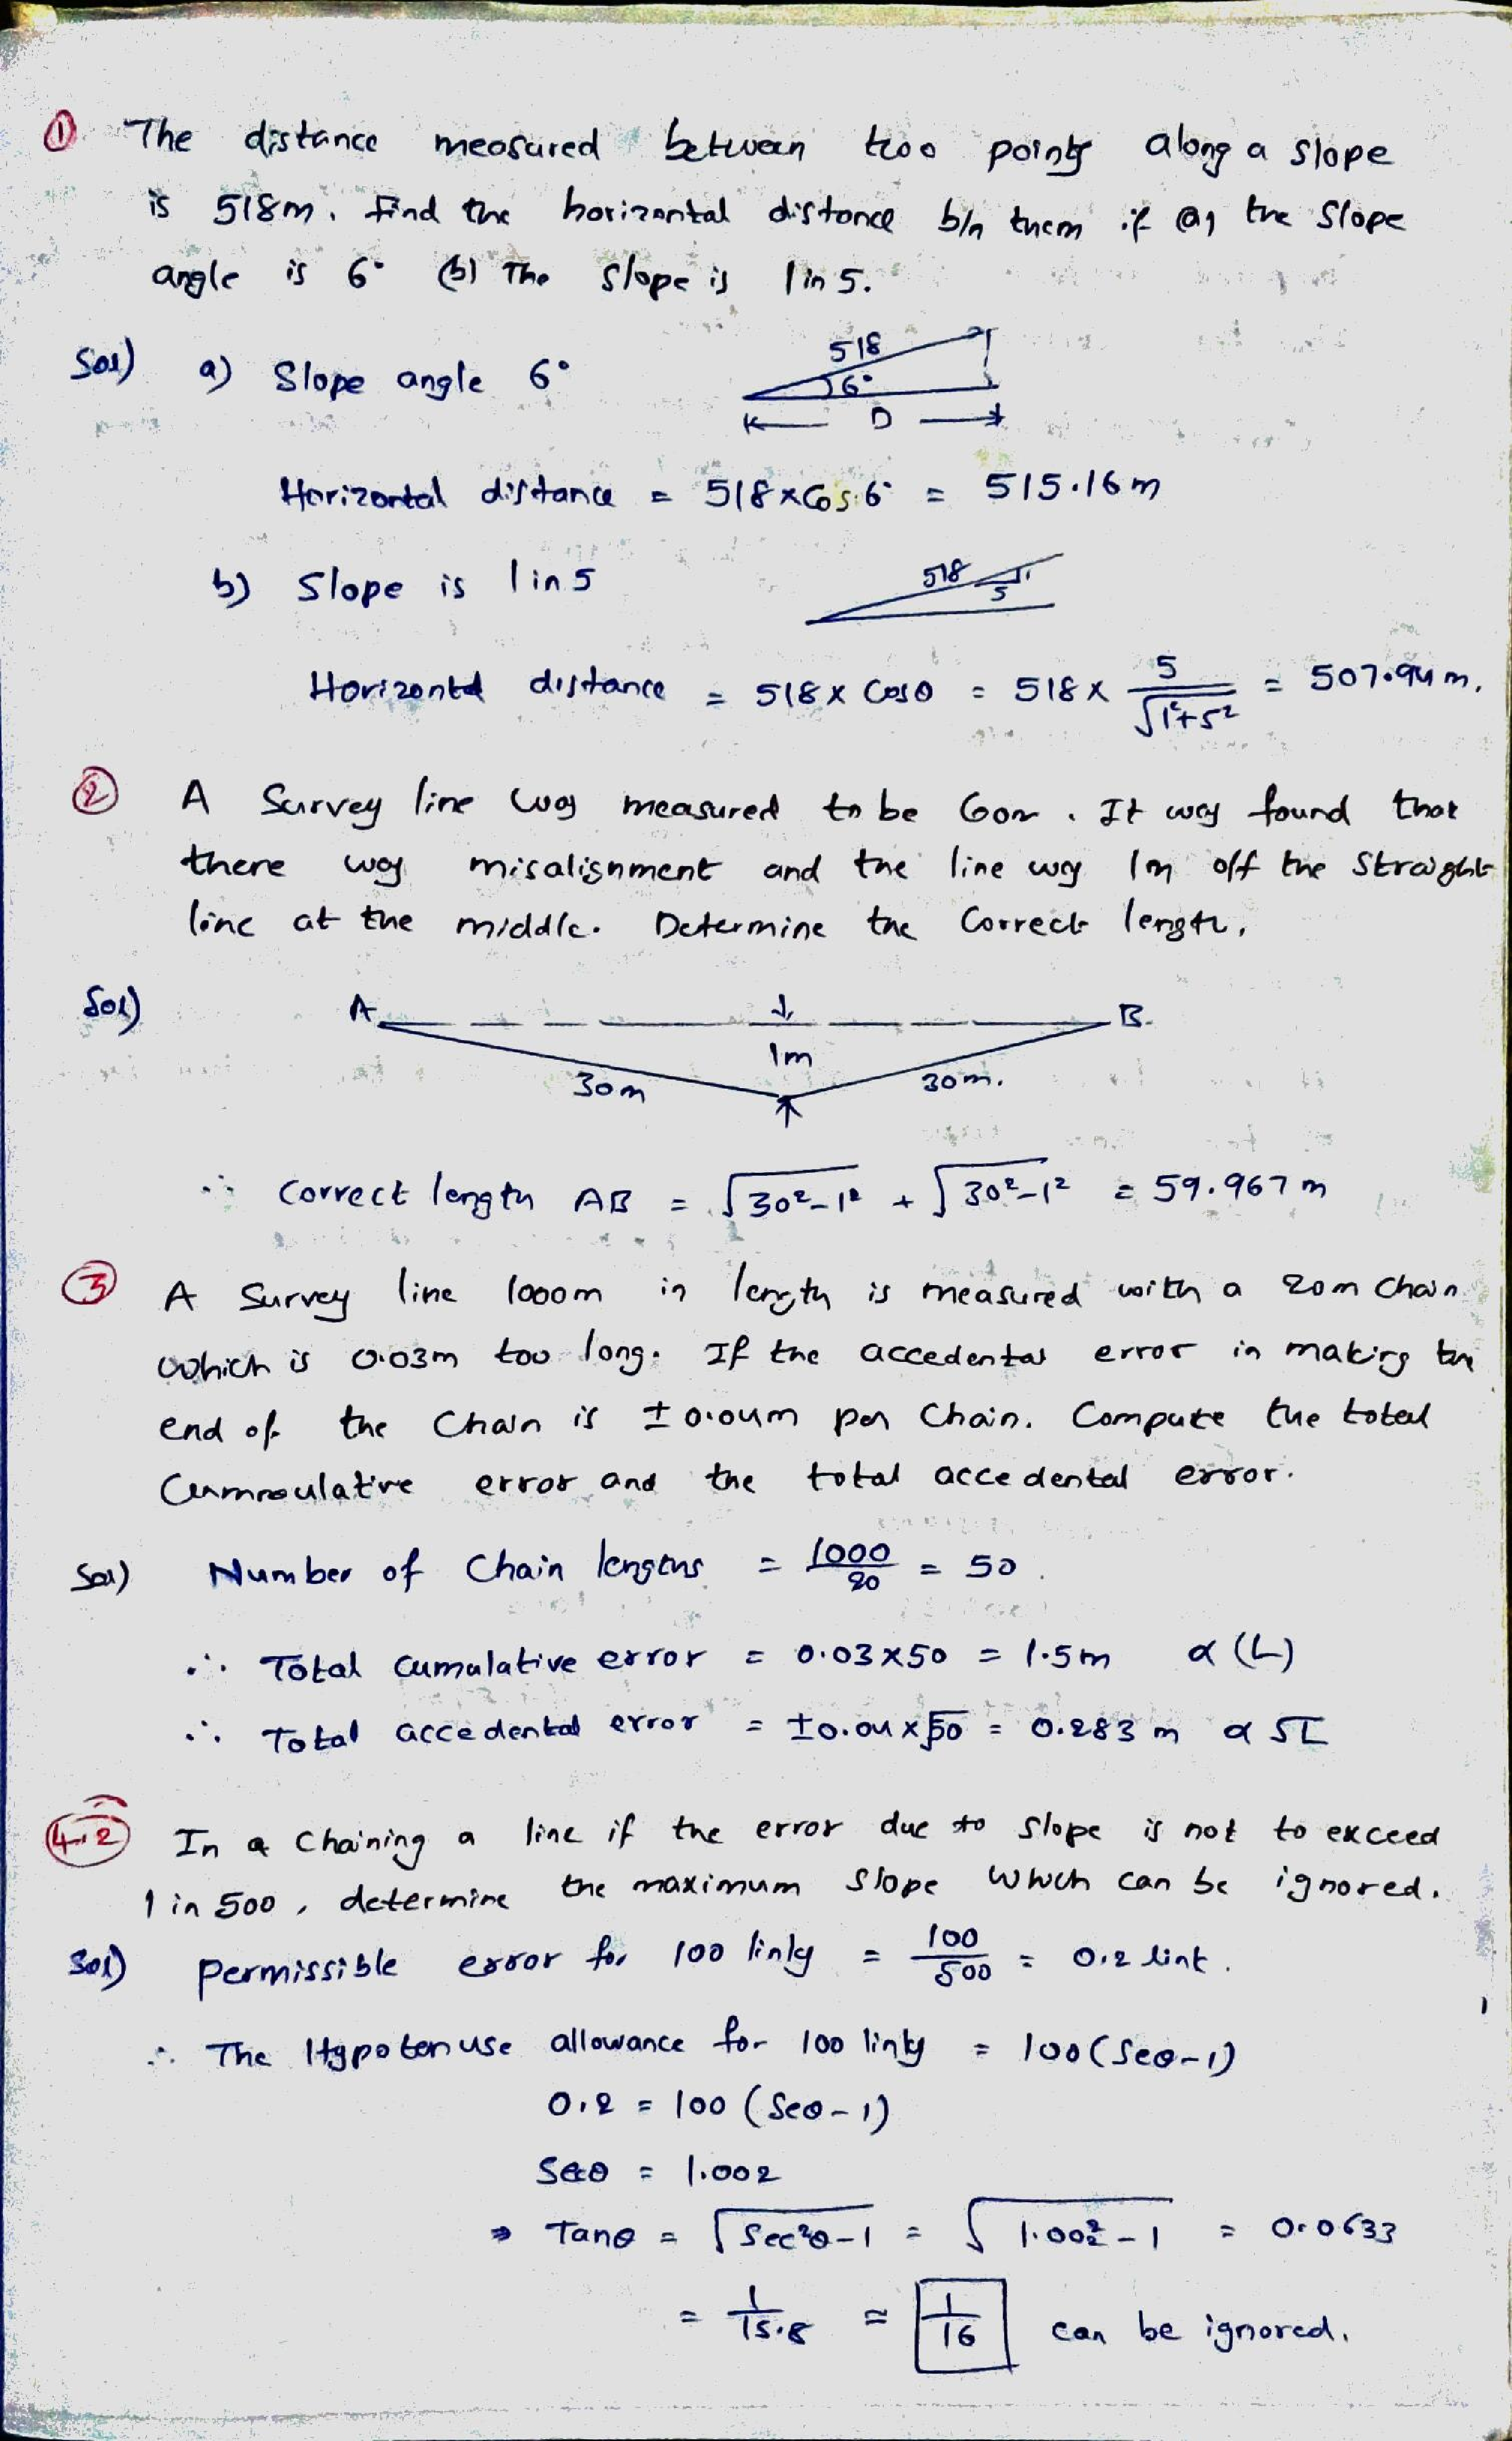 ① The distance measured between two points along a slope
is 518m. find the horizontal distance b/n them if (a) the slope
angle is 6° (b) The slope is 1 in 5.
Sol) a) Slope angle 6°
518
6°
D
Horizontal distance = 518 x Cos 6° = 515.16 m
b) Slope is 1 in 5
518
1
5
Horizontal distance = 518 x Cosθ = 518 x 5/√1²+5² = 507.94 m.
② A Survey line was measured to be 60m. It was found that
there was misalignment and the line was 1m off the straight
line at the middle. Determine the Correct length.
Sol)
A B
1m
30m 30m.
∴ Correct length AB = √30²-1² + √30²-1² = 59.967 m
③ A Survey line 1000m in length is measured with a 20m chain
which is 0.03m too long. If the accedental error in making the
end of the Chain is ±0.04m per Chain. Compute the total
Cummulative error and the total accedental error.
Sol) Number of Chain lengths = 1000/20 = 50.
∴ Total cumulative error = 0.03x50 = 1.5m α (L)
∴ Total accedental error = ±0.04 x √50 = 0.283 m α √L
4.2 In a Chaining a line if the error due to slope is not to exceed
1 in 500, determine the maximum slope which can be ignored.
Sol) permissible error for 100 links = 100/500 = 0.2 link.
∴ The Hypotenuse allowance for 100 links = 100(Secθ-1)
0.2 = 100 (Secθ-1)
Secθ = 1.002
⇒ Tanθ = √Sec²θ-1 = √1.002²-1 = 0.0633
= 1/15.8 ≈ 1/16 can be ignored.